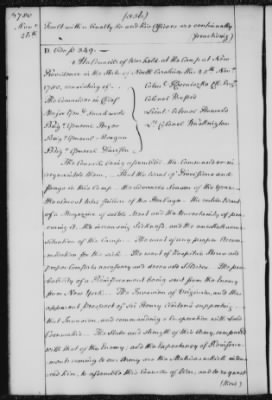 1780
Novr
25th
(246)
Trust with a Cruelty he and his Officers are continually
(practising)
D. Vide fo. 249.
At a Council of War held at the Camp at New
Providence in the State of North Carolina the 25th Novr
1780, consisting of
The Commander in Chief
Major Genl. Smallwood
Brigr General Huger
Brigr General Morgan
Brigr General
Colo. Kosciuszko Cf. Engr.
Colonel Buford
Lieut. Colonel Howard
Lt. Colonel Washington
The Council being assembled the Commander in
Chief them. That the want of Provisions and
Forage in this Camp. The
almost total failure of the Forage. The
of a Magazine of salted Meat and the Uncertainty of pro
curing it. The increasing Sickness, and the unwholesome
situation of the Camp. The want of any proper Accom
modation for the sick. The want of Hospital Stores and
proper Comforts necessary and Soldiers. The pro
bability of a Reinforcement being sent from the Enemy
from New York. The Invasion of Virginia, and the
apparent prospect of Sir Henry Clinton supporting
that Invasion, and commanding a Co-operation with Lord
Cornwallis. The State and Strength of this Army, compared
with that of the Enemy; and the Expectancy of Reinforce
ments coming to our Army are the Motives which
him, to assemble this Council of War, and to request
(their)